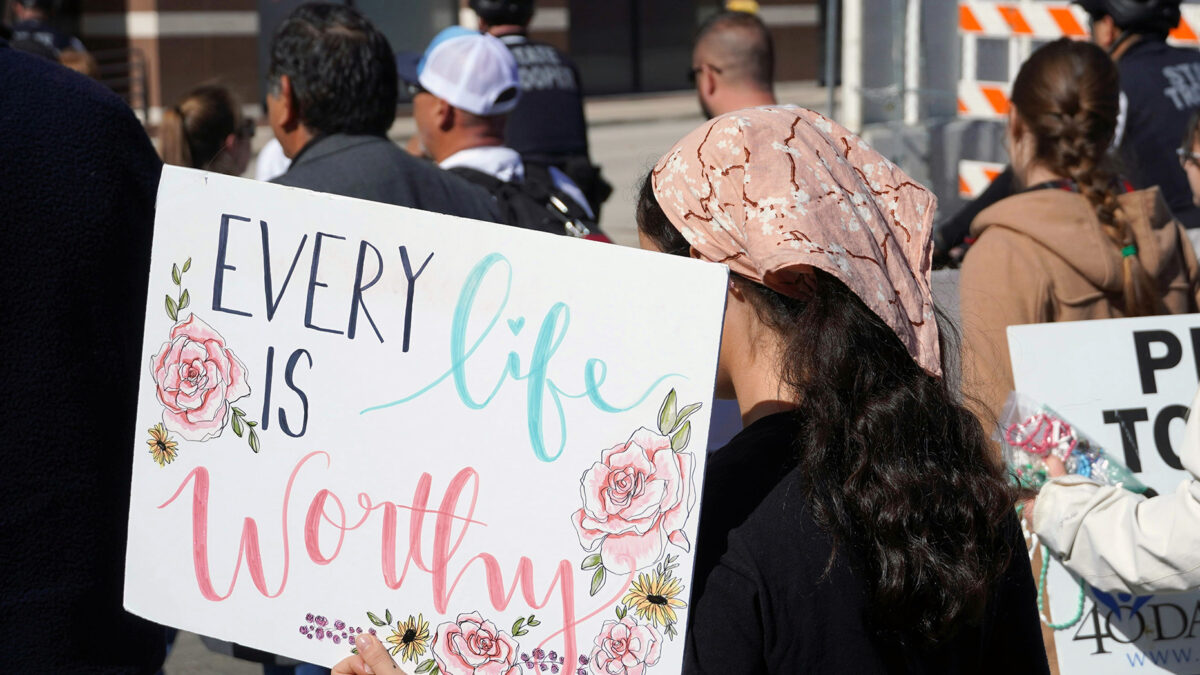 EVERY life
IS
Worthy
STATE
TROOPER
TO
40 DA
www.